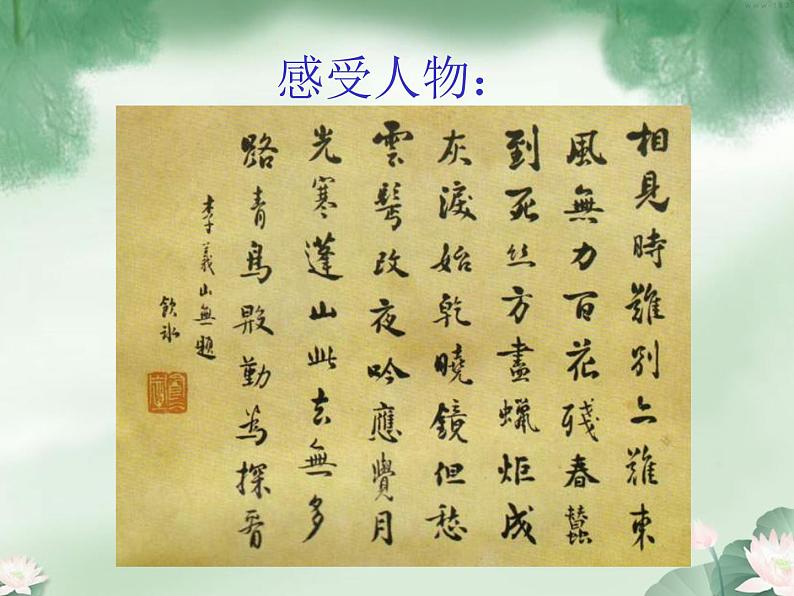 感受人物：
相見時難別亦難東
風無力百花殘春蠶
到死絲方盡蠟炬成
灰淚始乾曉鏡但愁
雲鬢改夜吟應覺月
光寒蓬山此去無多
路青鳥殷勤為探看
李義山無題
飲冰